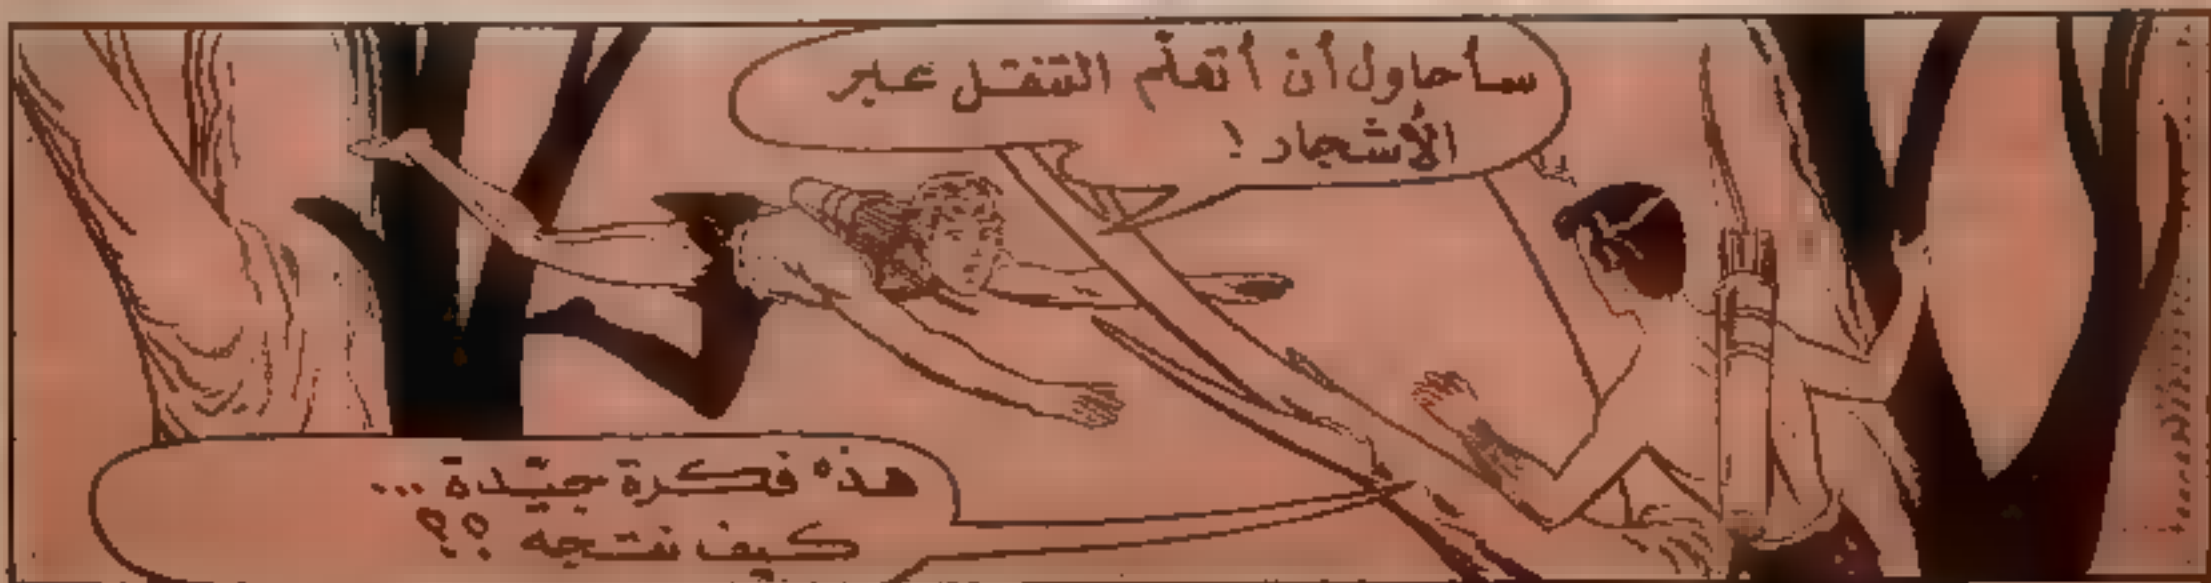 سأحاول أن أتعلّم التنقـل عبر
الأشجار !
هذه فكرة جيّدة ...
كيف نتجه ؟؟